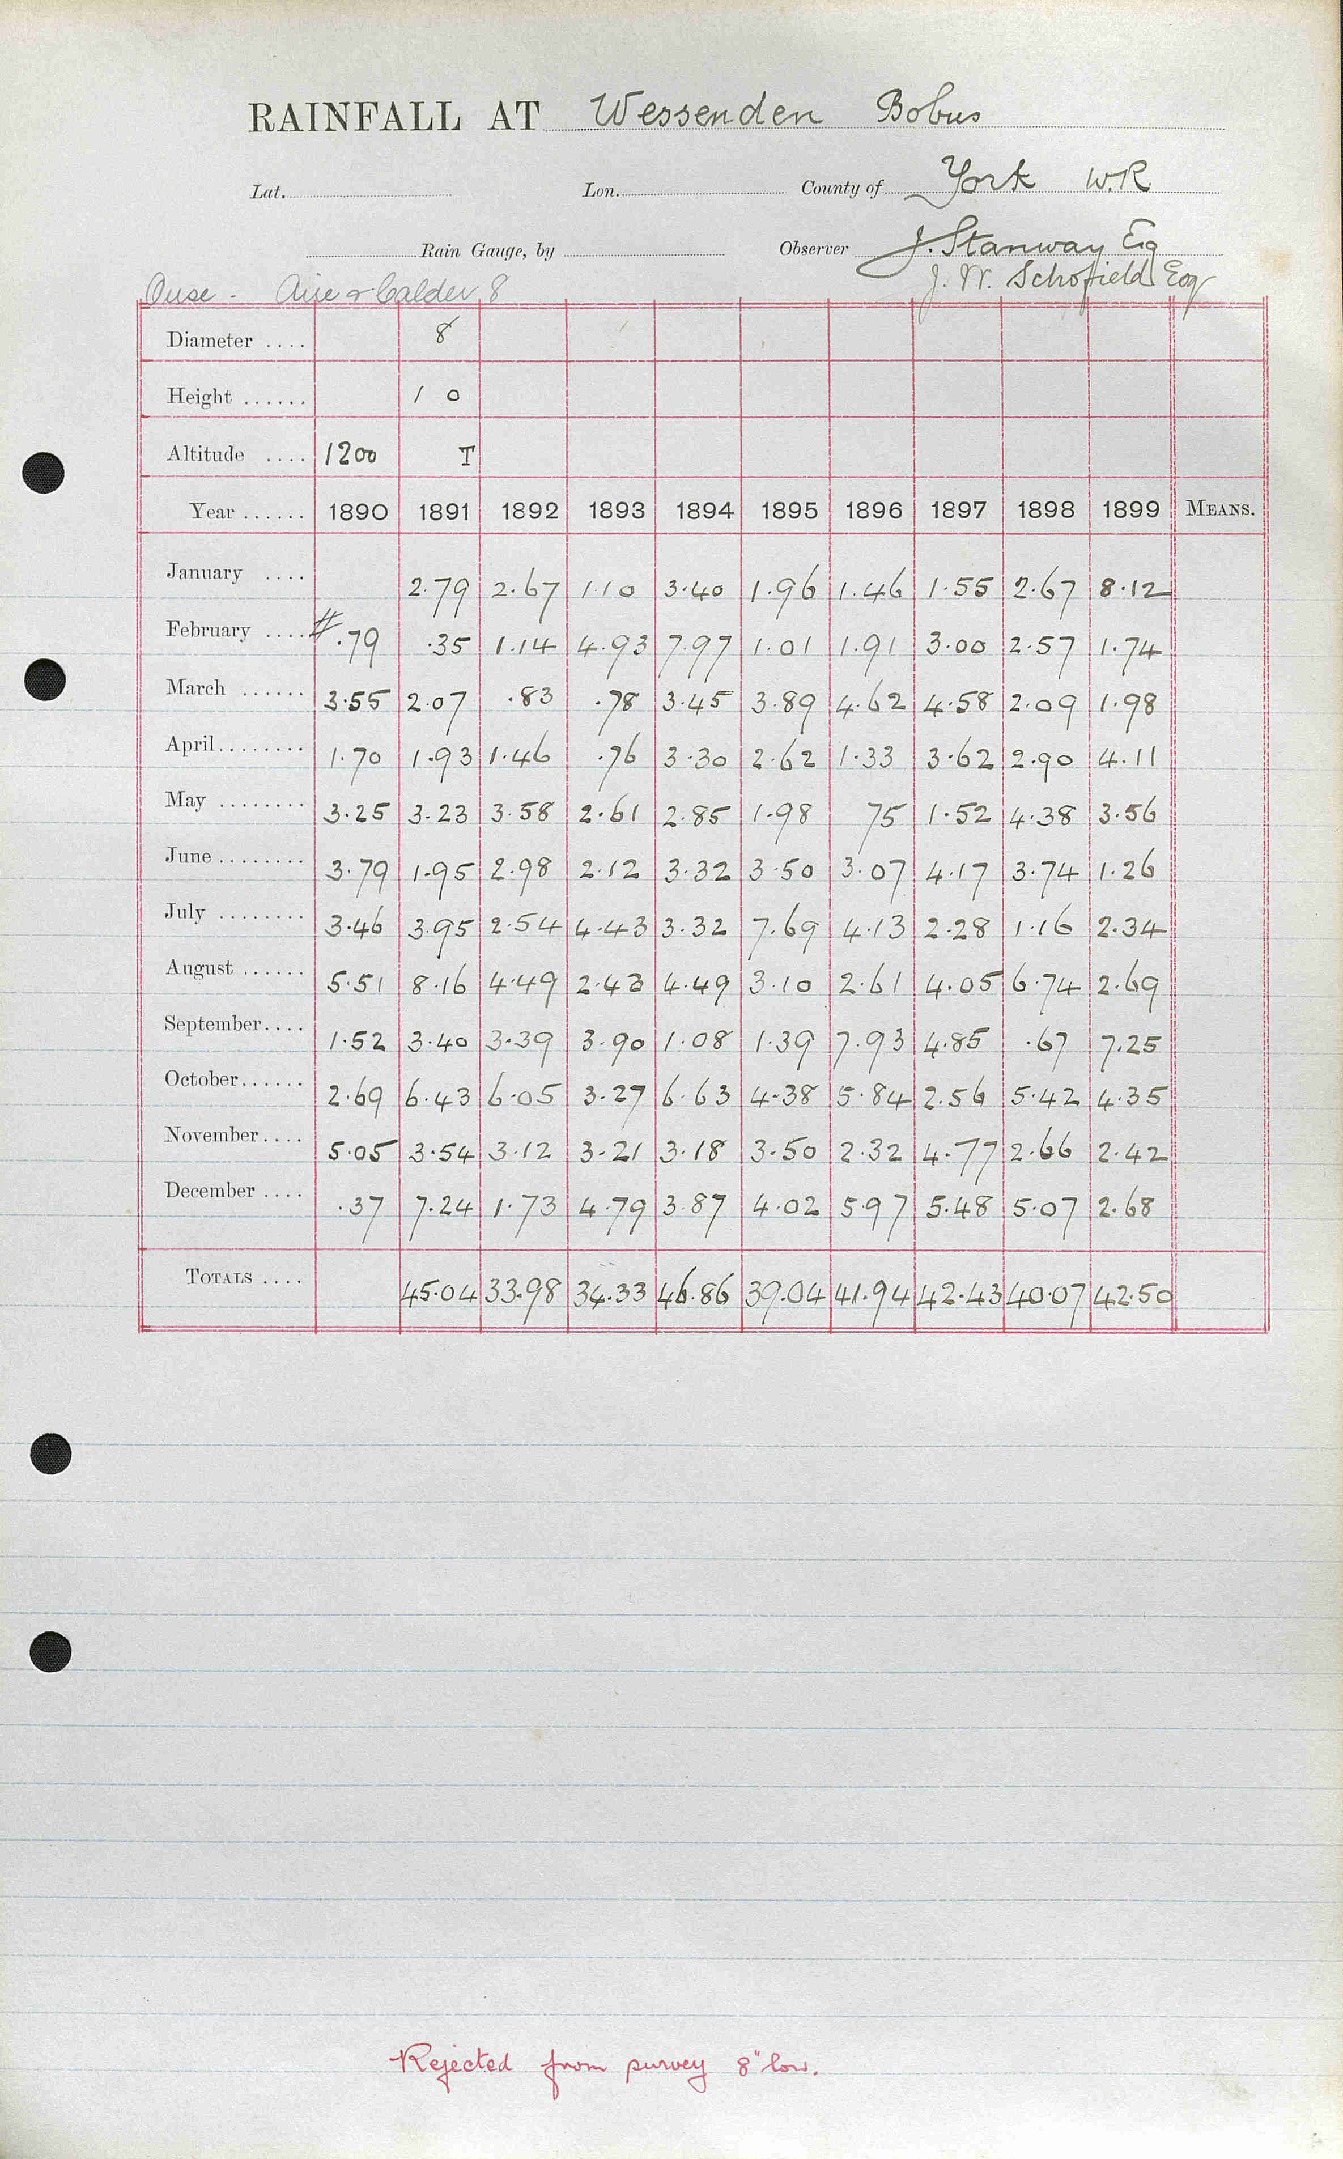 RAINFALL AT Wessenden Bobus
Lat. Lon. County of York W.R
Rain Gauge, by Observer J. Stanway Esq
J. W. Schofield Esq
Ouse - Aire & Calder 8
Diameter .... 8
Height ...... 1 0
Altitude .... 1200 T
Year ...... 1890 1891 1892 1893 1894 1895 1896 1897 1898 1899 MEANS.
January .... 2.79 2.67 1.10 3.40 1.96 1.46 1.55 2.67 8.12
February .... #.79 .35 1.14 4.93 7.97 1.01 1.91 3.00 2.57 1.74
March ...... 3.55 2.07 .83 .78 3.45 3.89 4.62 4.58 2.09 1.98
April........ 1.70 1.93 1.46 .76 3.30 2.62 1.33 3.62 2.90 4.11
May ........ 3.25 3.23 3.58 2.61 2.85 1.98 75 1.52 4.38 3.56
June ........ 3.79 1.95 2.98 2.12 3.32 3.50 3.07 4.17 3.74 1.26
July ........ 3.46 3.95 2.54 4.43 3.32 7.69 4.13 2.28 1.16 2.34
August ...... 5.51 8.16 4.49 2.43 4.49 3.10 2.61 4.05 6.74 2.69
September.... 1.52 3.40 3.39 3.90 1.08 1.39 7.93 4.85 .67 7.25
October...... 2.69 6.43 6.05 3.27 6.63 4.38 5.84 2.56 5.42 4.35
November .... 5.05 3.54 3.12 3.21 3.18 3.50 2.32 4.77 2.66 2.42
December .... .37 7.24 1.73 4.79 3.87 4.02 5.97 5.48 5.07 2.68
TOTALS .... 45.04 33.98 34.33 46.86 39.04 41.94 42.43 40.07 42.50
Rejected from survey 8" low.